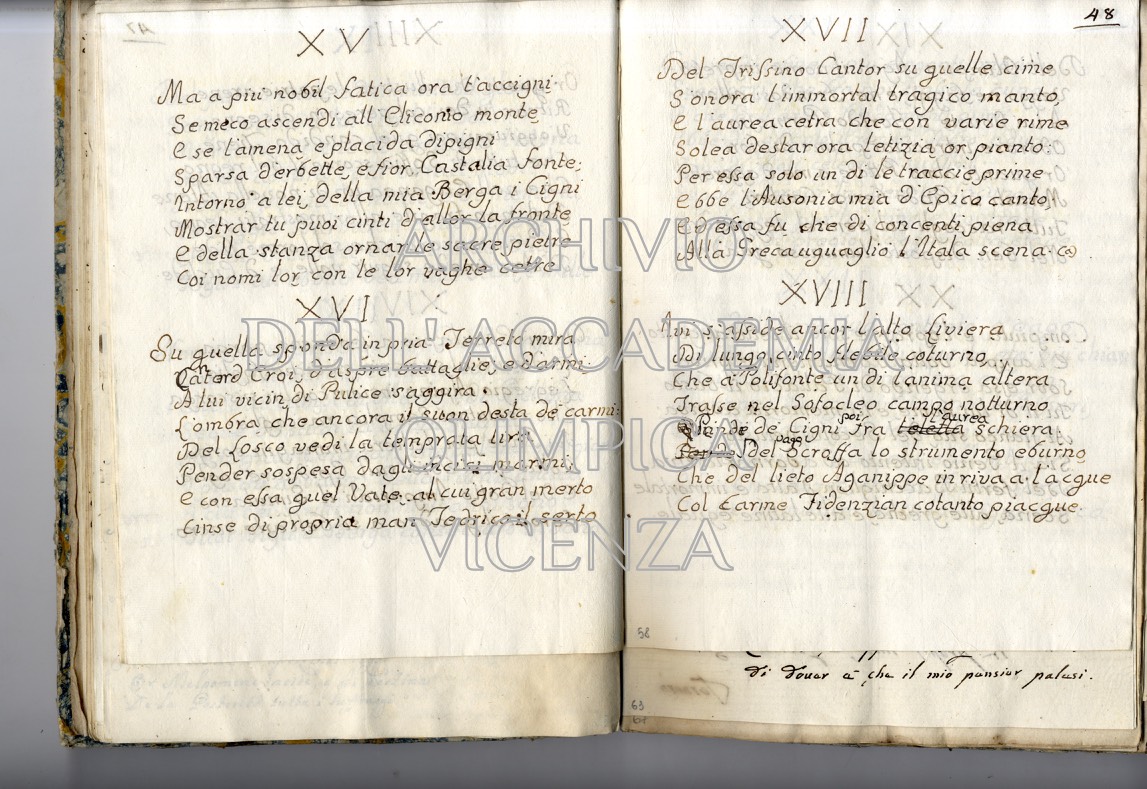 XV
Ma a piu nobil fatica ora t'accigni
Se meco ascendi all Eliconio monte,
E se l'amena e placida dipigni
Sparsa d'erbette, e fior Castalia fonte;
Intorno a lei, della mia Berga i Cigni
Mostrar tu puoi cinti d'allor la fronte
E della stanza ornar le sacre pietre
Coi nomi lor con le lor vaghe cetre
XVI
Su quella sponda in pria Ferreto mira
Cantor d'Eroi, d'aspre battaglie, e d'armi
A lui vicin di Pulice s'aggira
L'ombra che ancora il suon desta de carmi:
Del Losco vedi la temprata lira
Pender sospesa dagli incisi marmi,
E con essa quel Vate, al cui gran merto
Cinse di propria man Fedrico il serto
48
XVII
Del Trissino Cantor su quelle cime
Sonora l'immortal tragico manto,
E l'aurea cetra che con varie rime
Solea destar ora letizia or pianto:
Per essa solo un di le traccie prime
Ebbe l'Ausonia mia d'Epico canto,
Ed essa fu che di concenti piena
Alla Greca uguagliò l'Itala scena
XVIII
Qui s'asside ancor l'alto Liviera
Di lungo cinto flebile coturno,
Che a Polifonte un di l'anima altera
Trasse nel Sofocleo campo notturno
Pende de' Cigni poi fra l'aurea schiera
Del Scraffa lo strumento eburno
Che del lieto Aganippe in riva a l'acque
Col Carme Fidenzian cotanto piacque.
58
di dover è che il mio pensier palesi.
63
ARCHIVIO
DELL'ACCADEMIA
OLIMPICA
VICENZA